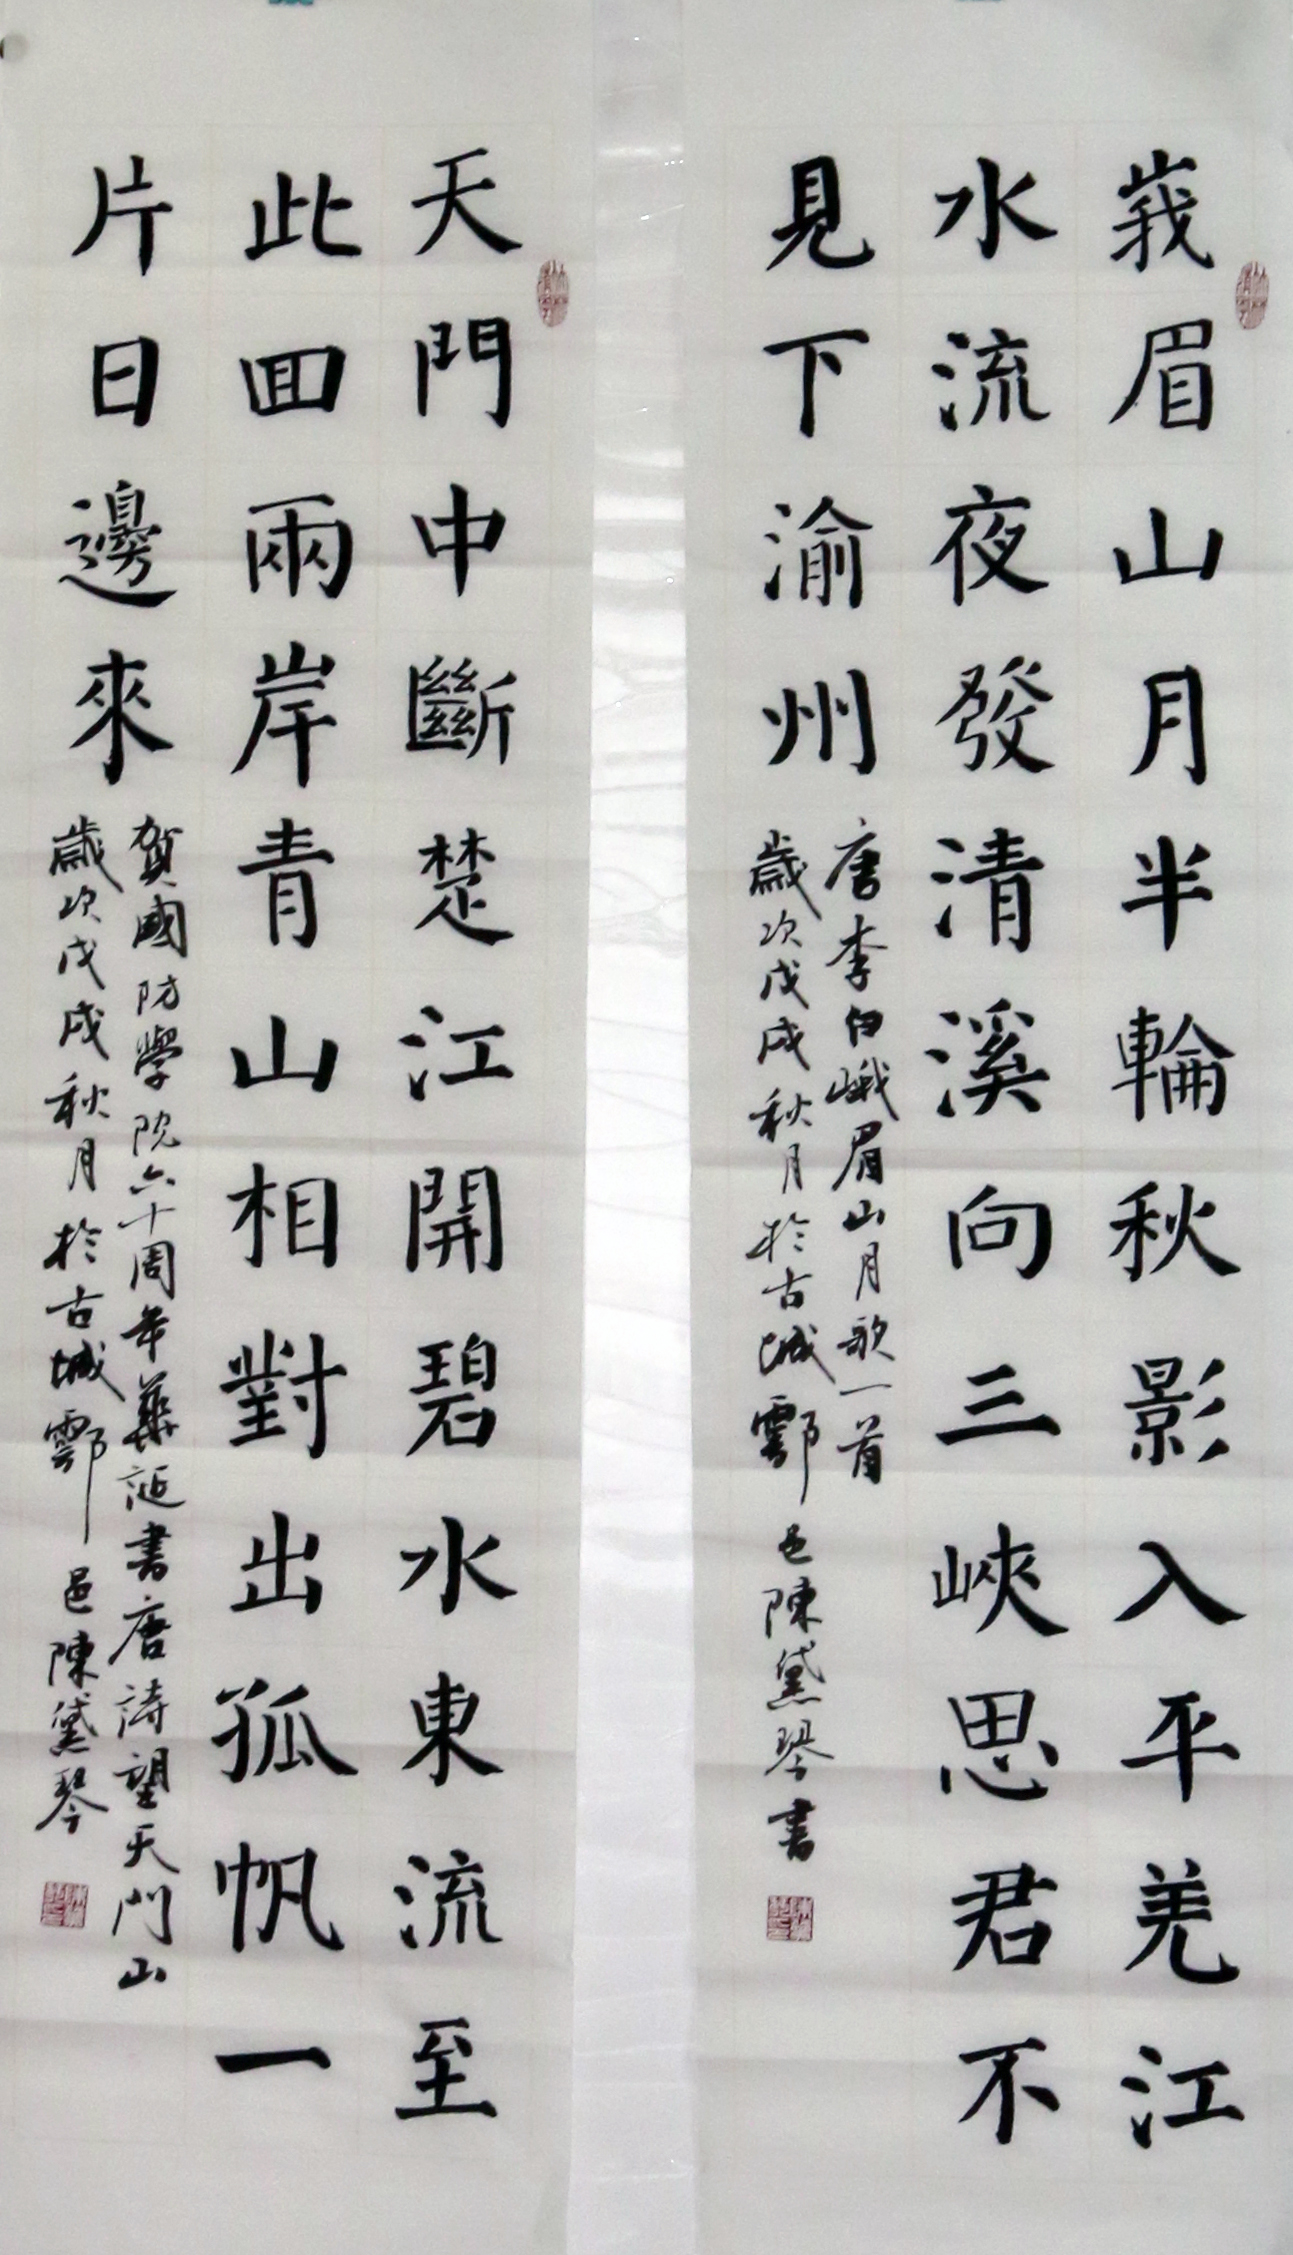 峩眉山月半輪秋影入平羌江
水流夜發清溪向三峽思君不
見下渝州
唐李白峨眉山月歌一首
歲次戊戌秋月於古城鄠邑陳黛琴書
天門中斷楚江開碧水東流至
此回兩岸青山相對出孤帆一
片日邊來
賀國防學院六十周年華誕書唐詩望天門山
歲次戊戌秋月於古城鄠邑陳黛琴